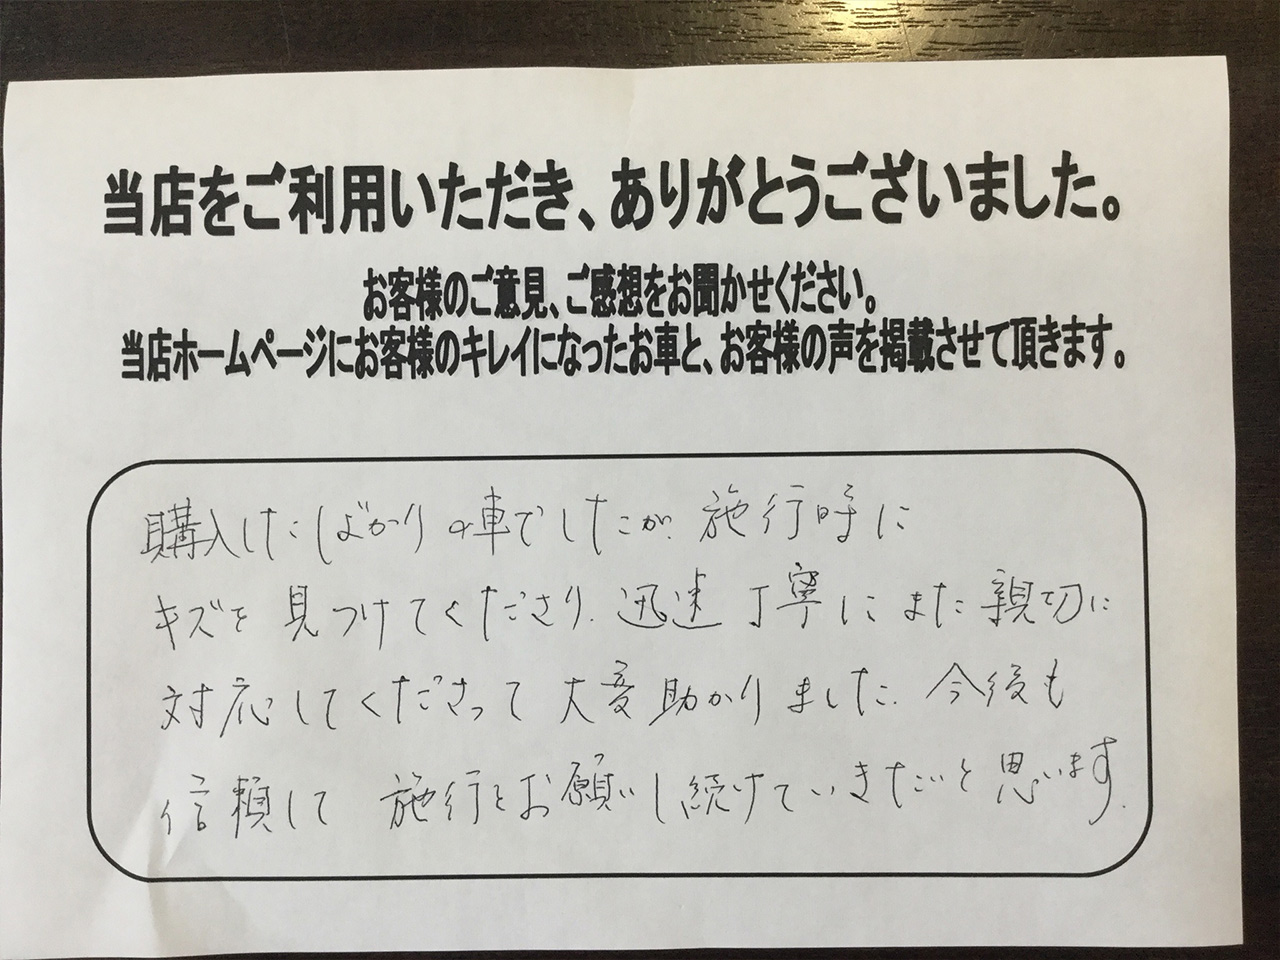 当店をご利用いただき、ありがとうございました。
お客様のご意見、ご感想をお聞かせください。
当店ホームページにお客様のキレイになったお車と、お客様の声を掲載させて頂きます。
購入したばかりの車でしたが、施行時に
キズを見つけてくださり、迅速丁寧にまた親切に
対応してくださって大変助かりました。今後も
信頼して施行をお願いし続けていきたいと思います。